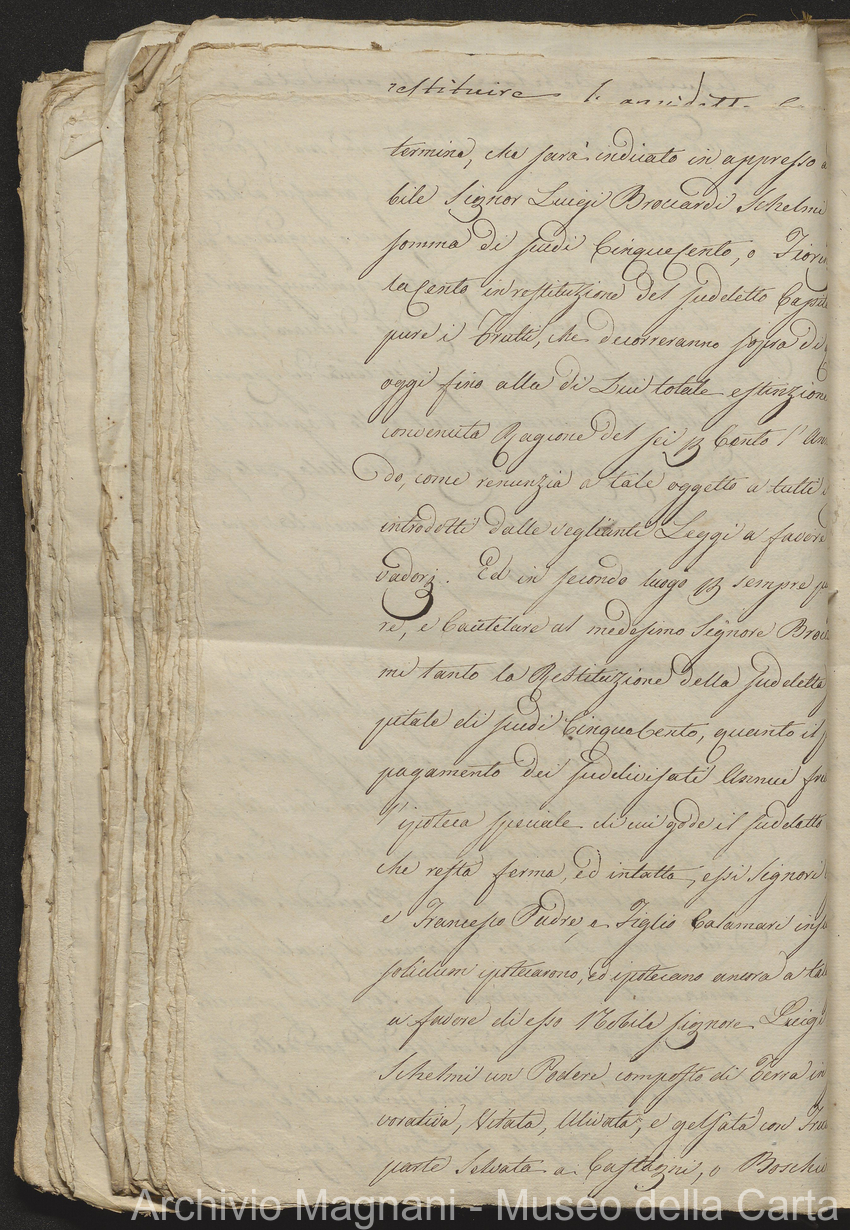 restituire
termine, che sarà indicato in appresso a
bile Signor Luigi Broccardi Schelmi
somma di scudi Cinquecento, o Fiori
lacento in restituzione del sudetto Capita
pure i frutti, che decorreranno sopra di
oggi fino alla di Lui totale estinzione
convenuta Ragione del sei p Cento l'An
do, come renunzia a tale oggetto a tutti
introdotti dalle veglianti Leggi a favore
vadori. Ed in secondo luogo p sempre
re, e Cautelare al medesimo Signore Broc
mi tanto la Restituzione della sudetta
pitale di scudi Cinquecento, quanto il
pagamento dei sudivisati Annui fru
l'ipoteca speciale di cui gode il sudetto
che resta ferma, ed intatta, essi Signori
e Francesco Padre, e Figlio Calamari in
solidum ipotecarono, ed ipotecano ancora a ta
a favore di esso Nobile Signore Luigi
Schelmi un Podere composto di Terra
vorativa, Vitata, Ulivata, e gelsata con Fru
parte Selvata a Castagni, o Boschi
Archivio Magnani - Museo della Carta